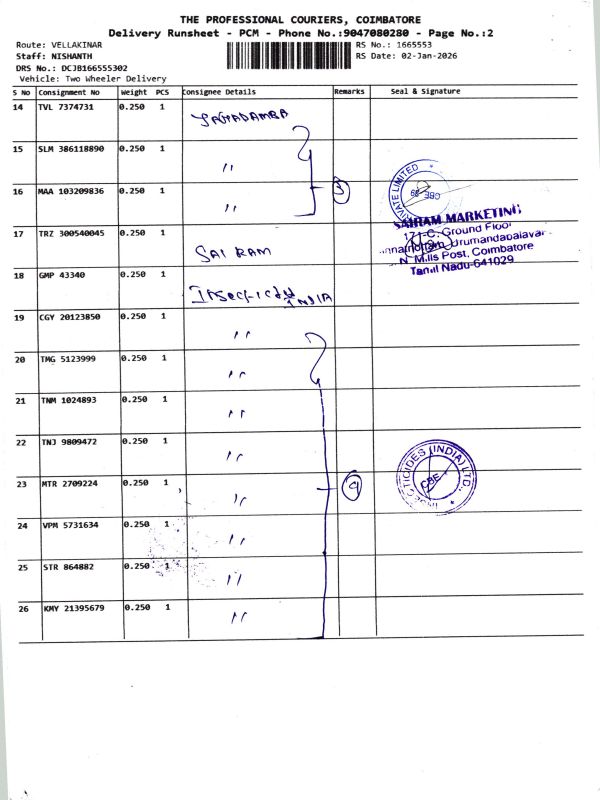 THE PROFESSIONAL COURIERS, COIMBATORE
Delivery Runsheet - PCM - Phone No.:9047080280 - Page No.:2
Route: VELLAKINAR
RS No.: 1665553
Staff: NISHANTH
RS Date: 02-Jan-2026
DRS No.: DCJB166555302
Vehicle: Two Wheeler Delivery
S No Consignment No Weight PCS Consignee Details Remarks Seal & Signature
14 TVL 7374731 0.250 1 JAGADAMBA
15 SLM 386118890 0.250 1 "
16 MAA 103209836 0.250 1 " 3
PRIVATE LIMITED * CBE
17 TRZ 300540045 0.250 1 SAI RAM
SAIRAM MARKETING
171-C, Ground Floor
N Mills Post, Coimbatore
Tamil Nadu-641029
18 GMP 43340 0.250 1 Insecticides INDIA
19 CGY 20123850 0.250 1 "
20 TMG 5123999 0.250 1 "
21 TNM 1024893 0.250 1 "
22 TNJ 9809472 0.250 1 "
23 MTR 2709224 0.250 1 " 9
INSECTICIDES (INDIA) LTD., * CBE
24 VPM 5731634 0.250 1 "
25 STR 864882 0.250 1 "
26 KMY 21395679 0.250 1 "